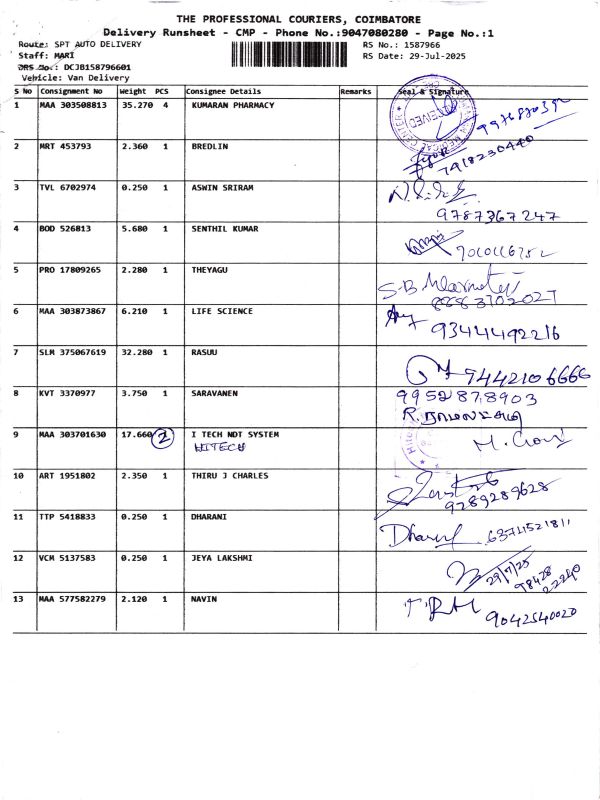 THE PROFESSIONAL COURIERS, COIMBATORE
Delivery Runsheet - CMP - Phone No.:9047080280 - Page No.:1
Route: SPT AUTO DELIVERY RS No.: 1587966
Staff: MARI RS Date: 29-Jul-2025
DRS No.: DCJB158796601
Vehicle: Van Delivery
S No Consignment No Weight PCS Consignee Details Remarks Seal & Signature
1 MAA 303508813 35.270 4 KUMARAN PHARMACY
RECEIVED
2 MRT 453793 2.360 1 BREDLIN
7418230440
3 TVL 6702974 0.250 1 ASWIN SRIRAM
9787367247
4 BOD 526813 5.680 1 SENTHIL KUMAR
5 PRO 17809265 2.280 1 THEYAGU
S.B
8883702027
6 MAA 303873867 6.210 1 LIFE SCIENCE
9344492216
7 SLM 375067619 32.280 1 RASUU
9442106666
8 KVT 3370977 3.750 1 SARAVANEN
9952878903
R.
9 MAA 303701630 17.660 2 I TECH NDT SYSTEM
HITECH
10 ART 1951802 2.350 1 THIRU J CHARLES
9289289628
11 TTP 5418833 0.250 1 DHARANI
6374521811
12 VCM 5137583 0.250 1 JEYA LAKSHMI
29/7/25
98428
22240
13 MAA 577582279 2.120 1 NAVIN
9042540020